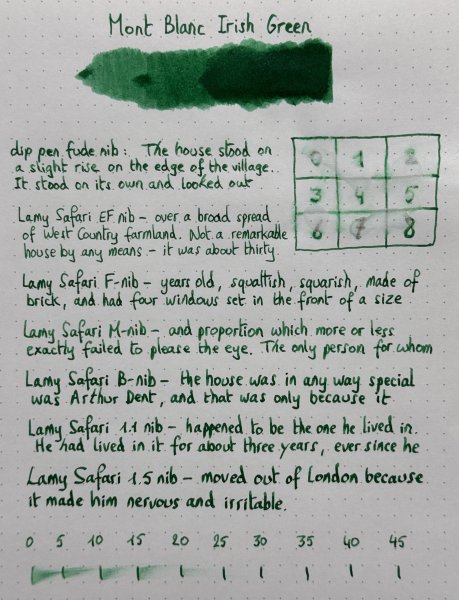 Mont Blanc Irish Green
dip pen fude nib: The house stood on
a slight rise on the edge of the village.
It stood on its own and looked out
0 1 2
3 4 5
6 7 8
Lamy Safari EF nib – over a broad spread
of West Country farmland. Not a remarkable
house by any means – it was about thirty
Lamy Safari F-nib – years old, squattish, squarish, made of
brick, and had four windows set in the front of a size
Lamy Safari M-nib – and proportion which more or less
exactly failed to please the eye. The only person for whom
Lamy Safari B-nib – the house was in any way special
was Arthur Dent, and that was only because it
Lamy Safari 1.1 nib – happened to be the one he lived in.
He had lived in it for about three years, ever since he
Lamy Safari 1.5 nib – moved out of London because
it made him nervous and irritable.
0 5 10 15 20 25 30 35 40 45